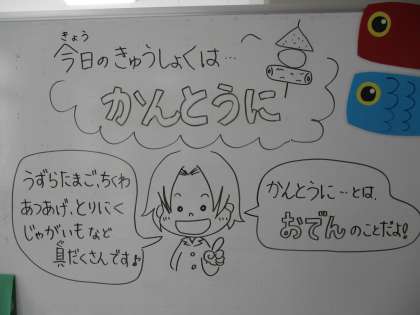 今日のきゅうしょくは…
きょう
かんとうに
うずらたまご、ちくわ
あつあげ、とりにく
じゃがいもなど
具だくさんです♪
ぐ
かんとうに…とは、
おでんのことだよ!